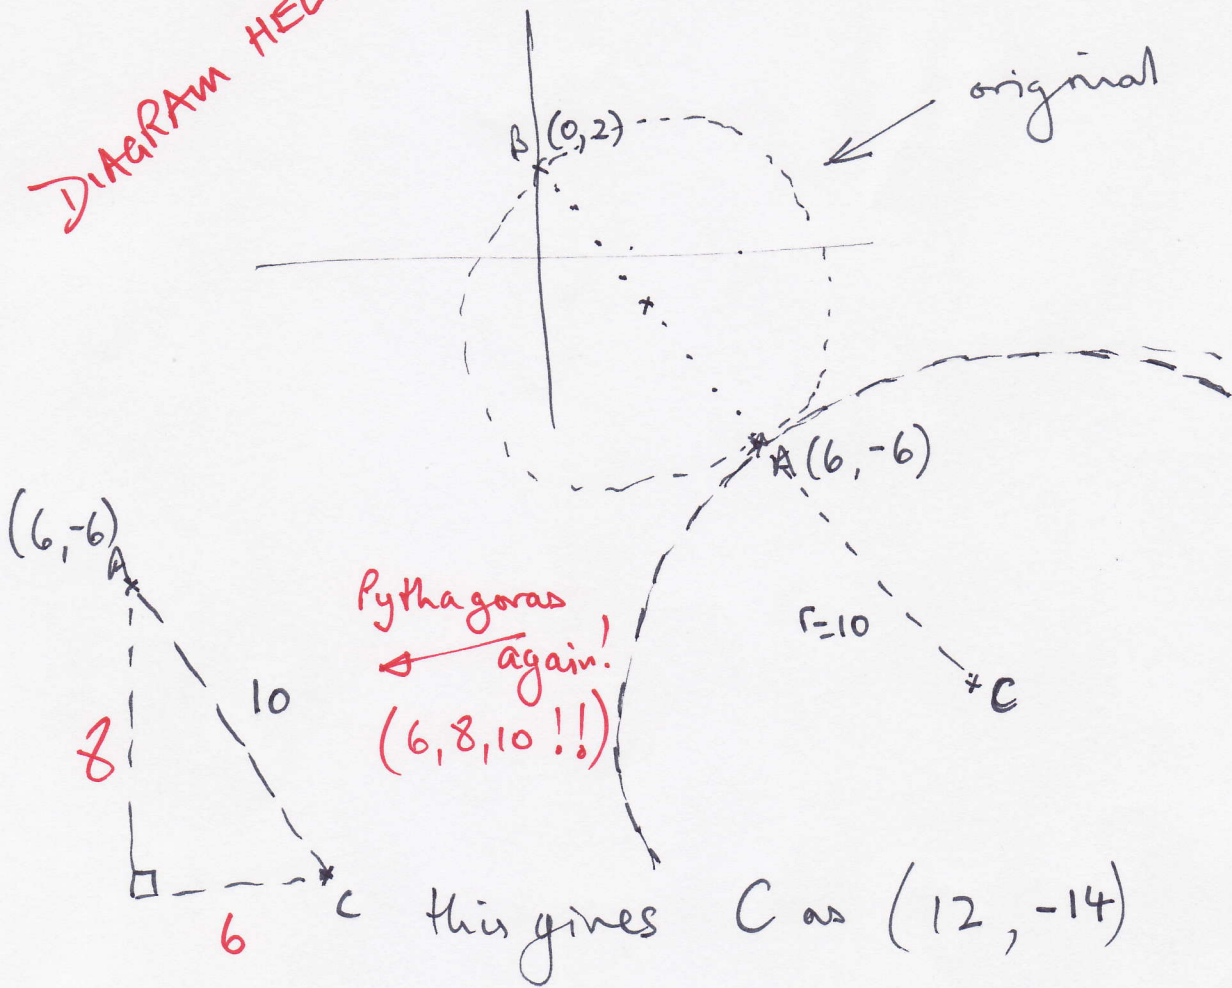 DIAGRAM
original
B (0,2)
A (6,-6)
r=10
C
(6,-6)
A
8
10
6
C
Pythagoras
again!
(6,8,10 !!)
this gives C as (12, -14)